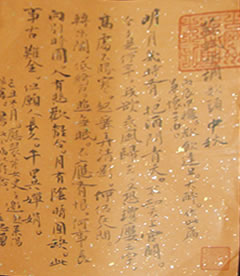 水調歌頭 中秋
丙辰中秋歡飲達旦大醉作此篇
兼懷子由
明月幾時有把酒問青天不知天上宮闕
今夕是何年我欲乘風歸去又恐瓊樓玉宇
高處不勝寒起舞弄清影何似在人間
轉朱閣低綺戶照無眠不應有恨何事長
向別時圓人有悲歡離合月有陰晴圓缺此
事古難全但願人長久千里共嬋娟